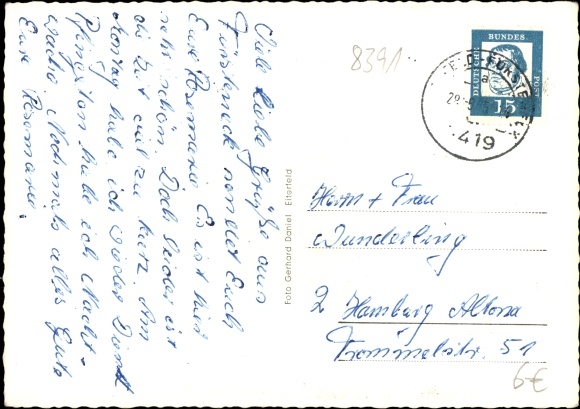 Viele liebe Grüße aus
Fürsteneck sendet Euch
Eure Rosemarie. Es ist hier
sehr schön. Doch leider ist
die Zeit viel zu kurz. Am
Montag habe ich wieder Dienst
Pfingsten habe ich Nacht-
wache. Nochmals alles Gute
Eure Rosemarie.
Foto Gerhard Daniel Eiterfeld
8391
DEUTSCHE
BUNDES
POST
15
419
Herrn + Frau
Wunderling
2 Hamburg Altona
Trommelstr. 51
6€